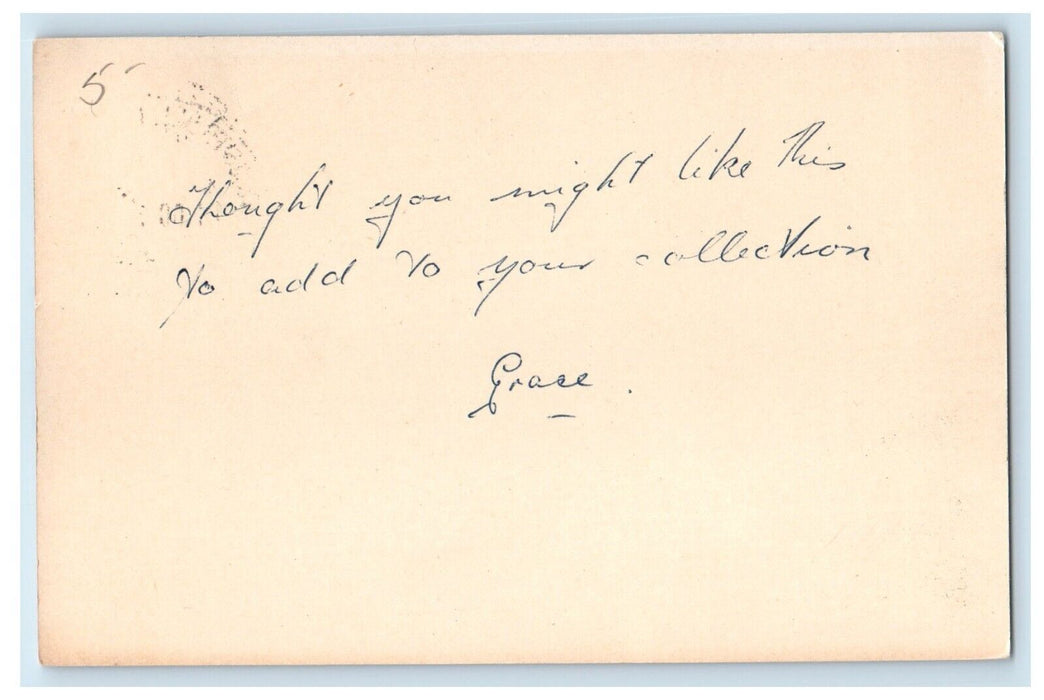 5
Thought you might like this
to add to your collection
Grace.